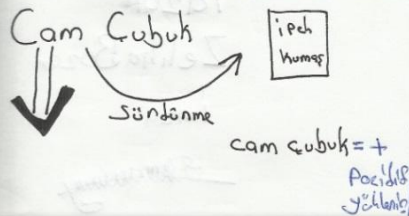 Cam Çubuk
ipek
kumaş
Sürtünme
cam çubuk = +
Pozitif
yüklenir